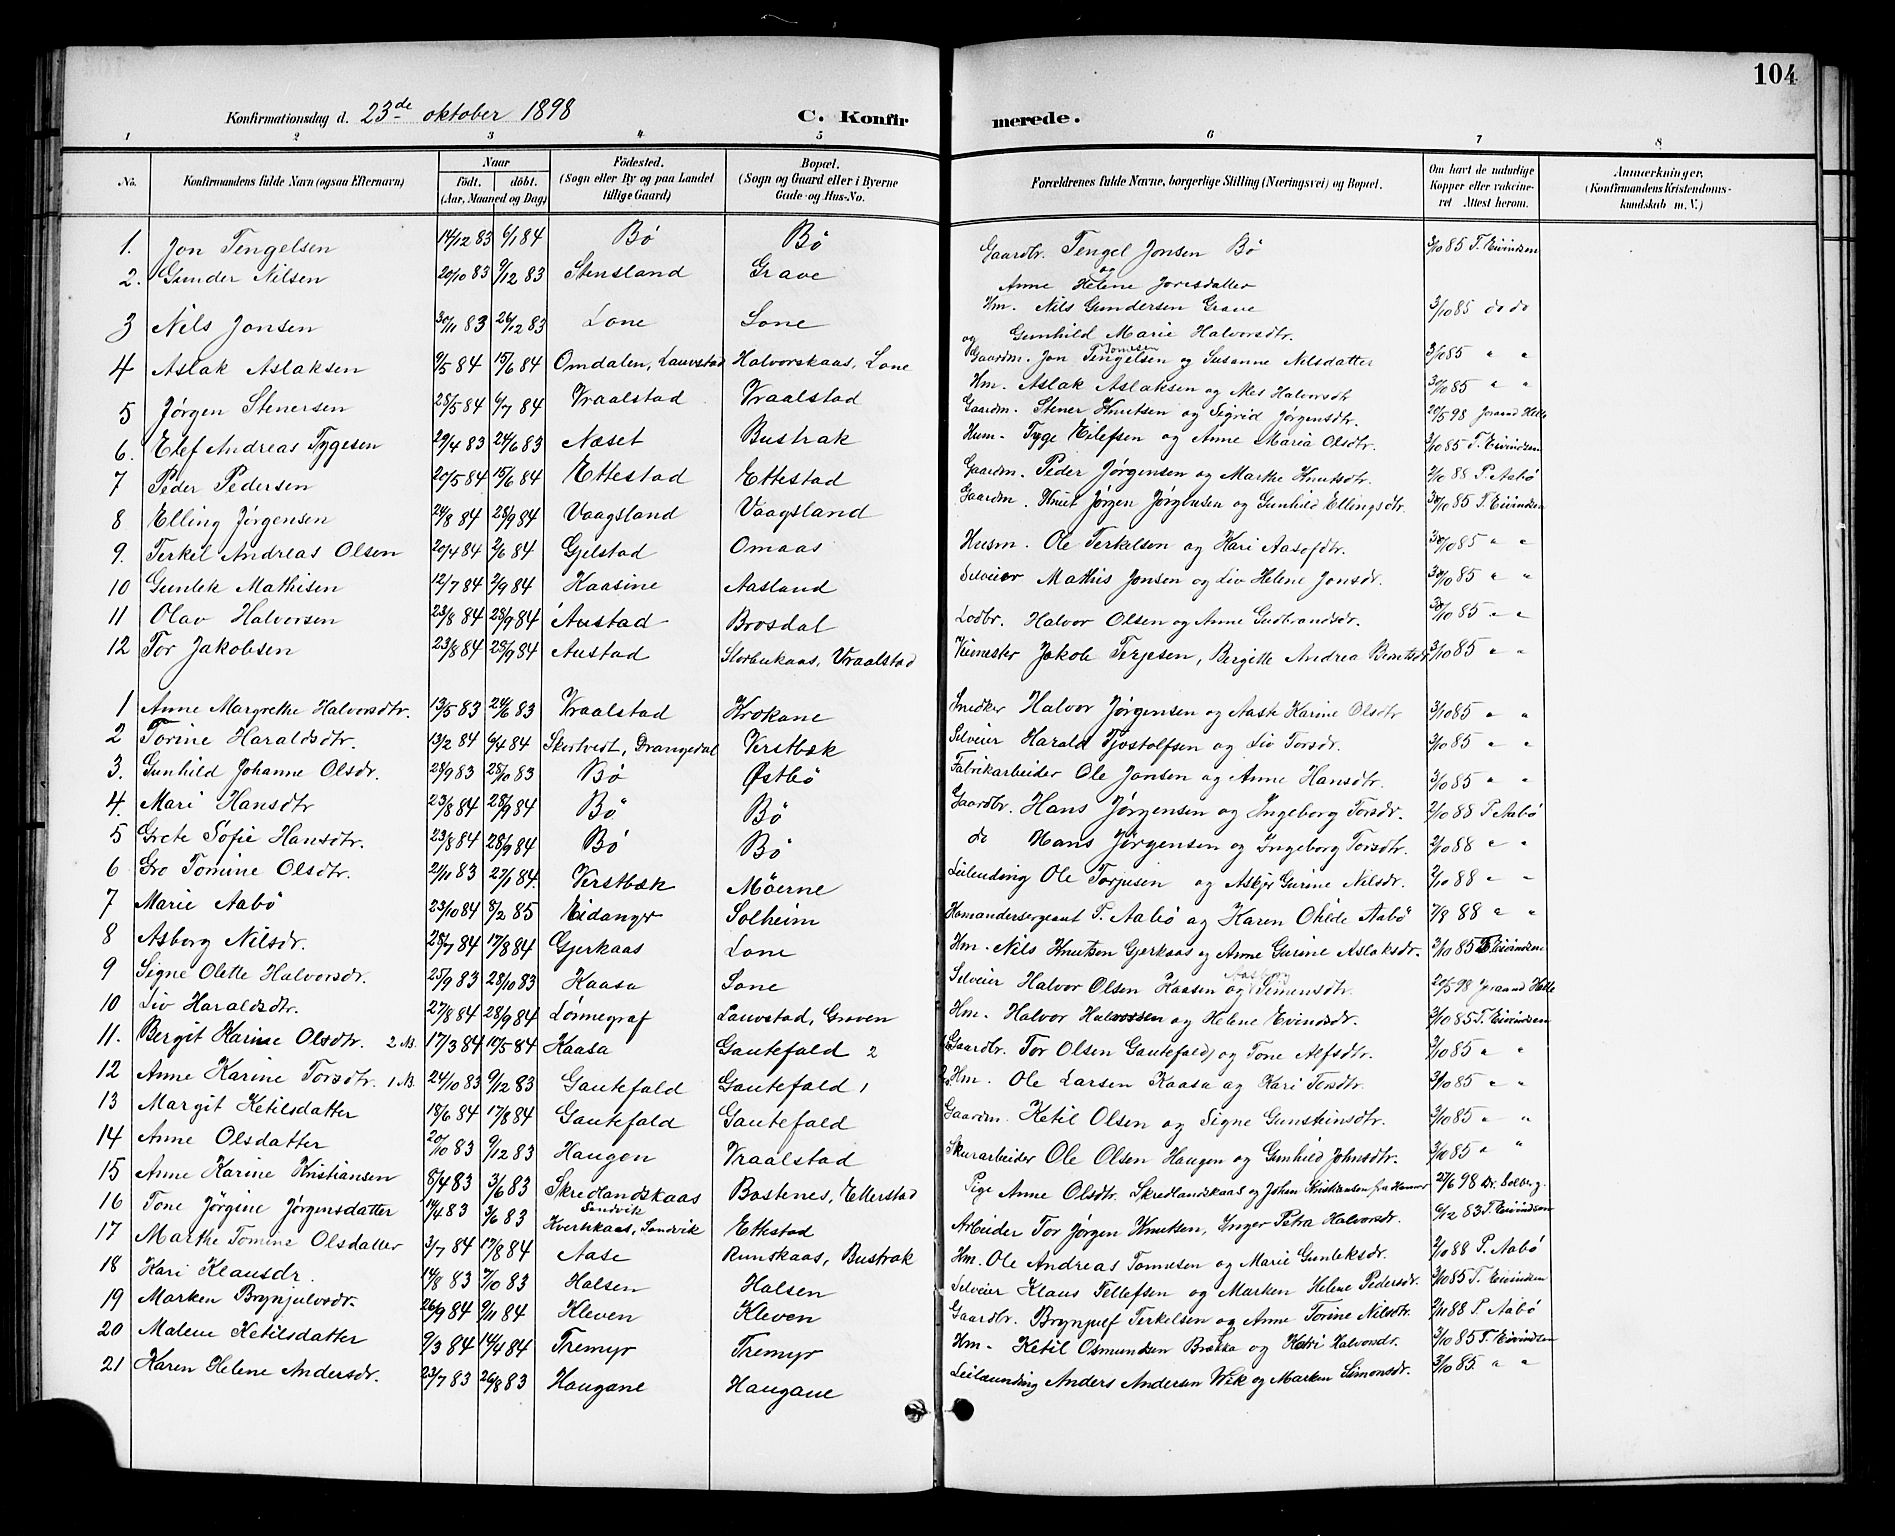 104
Konfirmationsdag d. 23de oktober 1898
C. Konfirmerede.
1 2 3 4 5 6 7 8
No.
Konfirmandens fulde Navn (ogsaa Efternavn)
Naar
født. döbt.
(Aar, Maaned og Dag)
Födested.
(Sogn eller By og paa Landet
tillige Gaard)
Bopæl.
(Sogn og Gaard eller i Byerne
Gade- og Hus-No.
Forældrenes fulde Navne, borgerlige Stilling (Næringsvei) og Bopæl.
Om havt de naturlige
Kopper eller vaccine-
ret Attest herom.
Anmærkninger.
(Konfirmandens Kristendoms-
kundskab m. V.)
1. Jon Tengelsen 14/12 83 6/1 84 Bö Bö Gaardbr. Tengel Jonsen Bö og Anne Helene Joresdatter 3/10 85 T. Eivindsen
2. Gunder Nilsen 20/10 83 9/12 83 Stensland Grave Hm. Nils Gundersen Grave og Gunhild Marie Halvorsdtr. 3/10 85 do do
3 Nils Jonsen 30/11 83 26/12 83 Lone Lone Gaardm. Jon Tengelsen og Susanne Nilsdatter 3/10 85 " "
4 Aslak Aslaksen 9/5 84 15/6 84 Omdalen, Lauvstad Halvorskaas, Lone Hm. Aslak Aslaksen og Halvorsdt 3/10 85 " "
5 Jörgen Stenersen 28/5 84 6/7 84 Vraalstad Vraalstad Gaardm. Stener Knutsen og Sigrid Jörgensdtr. 20/5 98
6. Elef Andreas Tygesen 29/4 83 24/6 83 Næset Bustrak Husm. Tyge Eilefsen og Anne Maria Olsdtr. 3/10 85 T. Eivindsen
7 Peder Pedersen 20/5 84 15/6 84 Ettestad Ettestad Gaardm. Peder Jörgensen og Marthe Knutsdtr. 2/10 88 P. Aabö
8 Elling Jörgensen 24/8 84 28/9 84 Vaagsland Vaagsland Gaardm. Knut Jörgen Jörgensen og Gunhild Ellingsdtr. 3/10 85 T. Eivindsen
9. Terkel Andreas Olsen 20/4 84 2/6 84 Gjelstad Omaas Husm. Ole Terkelsen og Kari Aasofdtr. 3/10 85 " "
10 Gunlek Mathisen 12/7 84 2/9 84 Kaasine Aasland Selveier Mathis Jonsen og Liv Helene Jonsdr. 3/10 85 " "
11 Olav Halvorsen 23/8 84 28/9 84 Austad Brosdal Lodbr. Halvor Olsen og Anne Gudbrandsdr. 3/10 85 " "
12 Tor Jakobsen 23/8 84 28/9 84 Austad Storbukaas, Vraalstad Veimester Jakob Terjesen, Bergitte Andrea Berntsdr. 3/10 85 " "
1 Anne Margrethe Halvorsdtr. 13/5 83 24/6 83 Vraalstad Krokane Smedker Halvor Jörgensen og Aaste Karine Olsdtr 3/10 85 " "
2 Torine Haraldsdtr. 13/2 84 6/4 84 Skertvedt, Drangedal Verstbæk Selveier Harald Tjostolfsen og Liv Torsdr. 3/10 85 " "
3. Gunhild Johanne Olsdr. 28/9 83 28/10 83 Bö Østbö Fabrikarbeider Ole Jonsen og Anne Hansdtr. 3/10 85 " "
4. Mari Hansdtr 23/8 84 28/9 84 Bö Bö Gaardbr. Hans Jörgensen og Ingeborg Torsdr. 2/10 88 P. Aabö
5 Grete Sofie Hansdtr. 23/8 84 28/9 84 Bö Bö do Hans Jörgensen og Ingeborg Torsdtr. 2/10 88 " "
6 Gro Tomine Olsdtr. 2/11 83 27/1 84. Verstbæk Möerne Leilending Ole Torjusen og Askjer Gurine Nilsdr. 2/10 88 " "
7 Marie Aabö 23/10 84 8/2 85 Eidanger Solheim Komandersergeant P. Aabö og Karen Otilde Aabö 7/8 88 " "
8 Asborg Nilsdr. 28/7 84 17/8 84 Gjerkaas Lone Hm. Nils Knutsen Gjerkaas og Anne Gurine Aslaksdr. 3/10 85 T. Eivindsen
9 Signe Olette Halvorsdr. 25/9 83 28/10 83 Kaasa Lone Selveier Halvor Olsen Kaasen og Aasborg Simensdtr. 20/5 98
10 Liv Haraldsdtr. 27/8 84 28/9 84 Lönnegraf Lauvstad, Graven Hm. Halvor Halvorsen og Helene Evindsdr. 3/10 85 T. Eivindsen
11. Bergit Karine Olsdtr. 2 N. 17/3 84 17/5 84 Kaasa Gautefald 2 Gaardbr. Tor Olsen Gautefald og Tone Alfsdtr. 3/10 85 " "
12 Anne Karine Torsdtr. 1 N. 24/10 83 9/12 83 Gautefald Gautefald 1 Hm. Ole Larsen Kaasa og Kari Torsdtr. 3/10 85 " "
13 Margit Ketilsdatter 18/6 84 17/8 84 Gautefald Gautefald Gaardm. Ketil Olsen og Signe Gunsteinsdtr. 3/10 85 " "
14 Anne Olsdatter 20/10 83 9/12 83 Haugen Vraalstad Skurarbeider Ole Olsen Haugen og Gunhild Johnsdtr. 3/10 85 " "
15 Anne Karine Kristiansen 8/4 83 3/6 83 Skredlandskaas Bostenes, Ettestad Pige Anne Olsdtr. Skredlandskaas og Johan Kristiansen fra Hammer 27/6 98 Dr. Solberg.
16 Tone Jörgine Jörgensdatter 19/4 83 3/6 83 Sandvik Kverkkaas, Sandvik Ettestad Arbeider Tor Jörgen Knutsen, Inger Petra Halvorsdr. 6/12 83 T. Eivindsen
17 Marthe Tomine Olsdatter 3/7 84 17/8 84 Aase Runskaas, Bustrak Hm. Ole Andreas Tomesen og Marie Gunleksdr. 2/10 88 P. Aabö
18 Kari Klausdr. 14/8 83 7/10 83 Halsen Halsen Selveier Klaus Tellefsen og Marken Helene Pedersdr. 3/10 85 T. Eivindsen
19 Marken Brynjulvsdr. 26/9 84 9/11 84 Kleven Kleven Gaardbr. Brynjulf Terkelsen og Anne Torine Nilsdtr. 2/10 88 P. Aabö
20 Malene Ketilsdatter 9/3 84 14/4 84 Tremyr Tremyr Hm. Ketil Osmundsen Brække og Kari Halvorsdr. 3/10 85 T. Eivindsen
21 Karen Helene Andersdr. 23/7 83 26/8 83 Haugane Haugane Leilænding Anders Andersen Wik og Marken Simonsdr. 3/10 85. " "